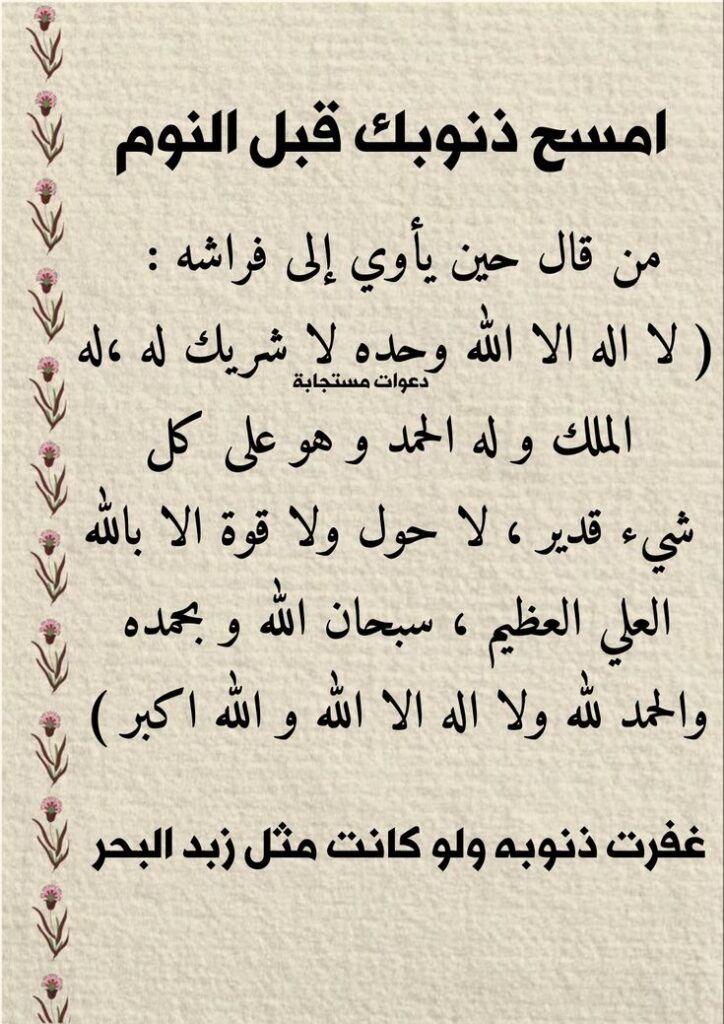 امسح ذنوبك قبل النوم
من قال حين يأوي إلى فراشه :
( لا اله الا الله وحده لا شريك له ،له
دعوات مستجابة
الملك و له الحمد و هو على كل
شيء قدير ، لا حول ولا قوة الا بالله
العلي العظيم ، سبحان الله و بحمده
والحمد لله ولا اله الا الله و الله اكبر )
غفرت ذنوبه ولو كانت مثل زبد البحر